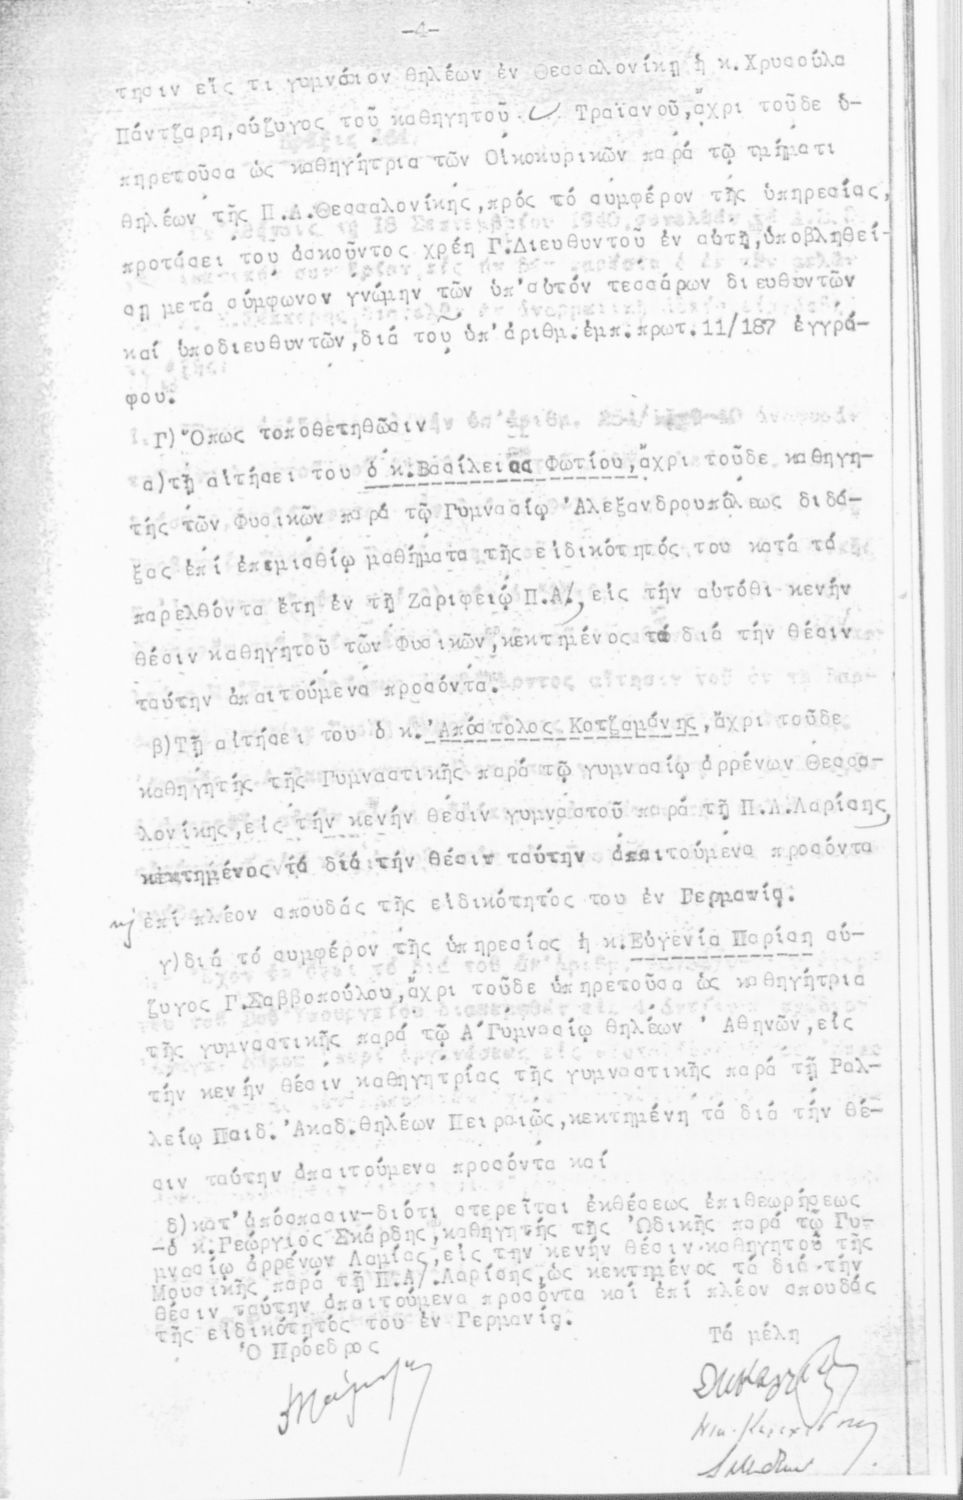 -4-
τησιν εἴς τι γυμνάσιον θηλέων ἐν Θεσσαλονίκῃ ἡ κ.Χρυσούλα
Πάντζαρη,σύζυγος τοῦ καθηγητοῦ Τραϊανοῦ,ἄχρι τοῦδε ὑ-
πηρετοῦσα ὡς καθηγήτρια τῶν Οἰκοκυρικῶν παρά τῷ τμήματι
θηλέων τῆς Π.Α.Θεσσαλονίκης,πρός τό συμφέρον τῆς ὑπηρεσίας,
προτάσει του ἀσκοῦντος χρέη Γ.Διευθυντοῦ ἐν αὐτῇ,ὑποβληθεί-
σῃ μετά σύμφωνον γνώμην τῶν ὑπ'αὐτόν τεσσάρων διευθυντῶν
καί ὑποδιευθυντῶν,διά του ὑπ'ἀριθμ.ἐμπ.πρωτ.11/187 ἐγγρά-
φου.
Γ)Ὅπως τοποθετηθῶσιν
α)τῇ αἰτήσει του ὁ κ.Βασίλειος Φωτίου,ἄχρι τοῦδε καθηγη-
τής τῶν Φυσικῶν παρά τῷ Γυμνασίῳ Ἀλεξανδρουπόλεως διδά-
ξας ἐπί ἐπιμισθίῳ μαθήματα τῆς εἰδικότητός του κατά τά
παρελθόντα ἔτη ἐν τῇ Ζαριφείῳ Π.Α/, εἰς τήν αὐτόθι κενήν
θέσιν καθηγητοῦ τῶν Φυσικῶν,κεκτημένος τά διά τήν θέσιν
ταύτην ἀπαιτούμενα προσόντα.
β)Τῇ αἰτήσει του ὁ κ.Ἀπόστολος Κοτζαμάνης,ἄχρι τοῦδε
καθηγητής τῆς Γυμναστικῆς παρά τῷ γυμνασίῳ ἀρρένων Θεσσα-
λονίκης,εἰς τήν κενήν θέσιν γυμναστοῦ παρά τῇ Π.Α.Λαρίσης,
κεκτημένος τά διά τήν θέσιν ταύτην ἀπαιτούμενα προσόντα
κ' ἐπί πλέον σπουδάς τῆς εἰδικότητός του ἐν Γερμανίᾳ.
γ)διά τό συμφέρον τῆς ὑπηρεσίας ἡ κ.Εὐγενία Παρίση σύ-
ζυγος Γ.Σαββοπούλου,ἄχρι τοῦδε ὑπηρετοῦσα ὡς καθηγήτρια
τῆς γυμναστικῆς παρά τῷ Α'Γυμνασίῳ θηλέων ' Αθηνῶν,εἰς
τήν κενήν θέσιν καθηγητρίας τῆς γυμναστικῆς παρά τῇ Ραλ-
λείῳ Παιδ.Ἀκαδ.θηλέων Πειραιῶς,κεκτημένη τά διά τήν θέ-
σιν ταύτην ἀπαιτούμενα προσόντα καί
δ)κατ'ἀπόσπασιν-διότι στερεῖται ἐκθέσεως ἐπιθεωρήσεως
-ὁ κ.Γεώργιος Σκάρδης,καθηγητής τῆς Ὠδικῆς παρά τῷ Γυ-
μνασίῳ ἀρρένων Λαμίας,εἰς την κενήν θέσιν καθηγητοῦ τῆς
Μουσικῆς παρά τῇ Π.Α/.Λαρίσης,ὡς κεκτημένος τά διά τήν
θέσιν ταύτην ἀπαιτούμενα προσόντα καί ἐπί πλέον σπουδάς
τῆς εἰδικότητός του ἐν Γερμανίᾳ.
Ὁ Πρόεδρος
Τά μέλη